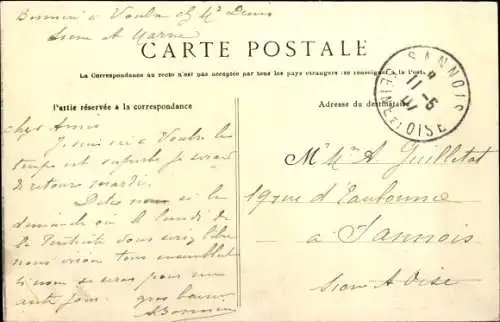 Bonnin à Voulx ch Mr Denis
Seine et Marne
CARTE POSTALE
La Correspondance au recto n'est pas acceptée par tous les pays étrangers (se renseigner à la Poste)
Partie réservée à la correspondance
Adresse du destinataire
SANNOIS
11-5
SEINE ET OISE
chers Amis
Je suis ici à Voulx le
temps est superbe je serai
de retour mardi.
Dites nous si le
dimanche ou le lundi de
la Pentecôte vous serez libre
nous irions tous ensemble
si non se sera pour une
autre jour. gros baisers
ABonnin
Mr Mme A Guilletat
19 rue d'Eaubonne
à Sannois
Seine et Oise